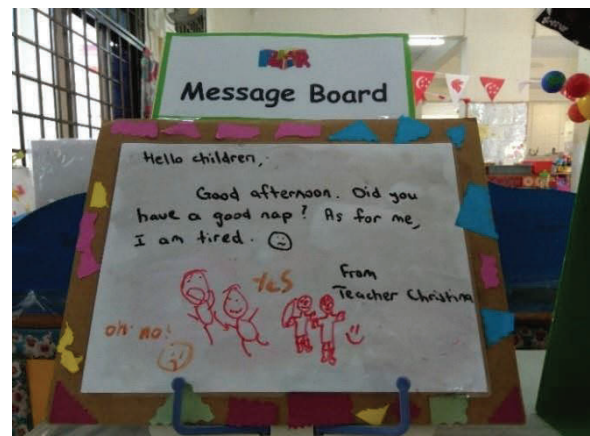 Message Board
Hello children,
Good afternoon. Did you
have a good nap? As for me,
I am tired.
From
Teacher Christina
Yes
oh no!